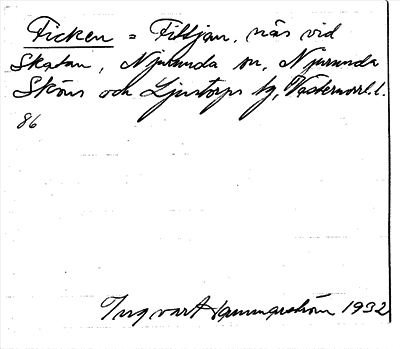 Ficken = Filljan, näs vid
Skatan, Njurunda sn, Njurunda
Sköns och Ljustorps tg, Västernorrl. l.
86
Ingvart Hammarström 1932